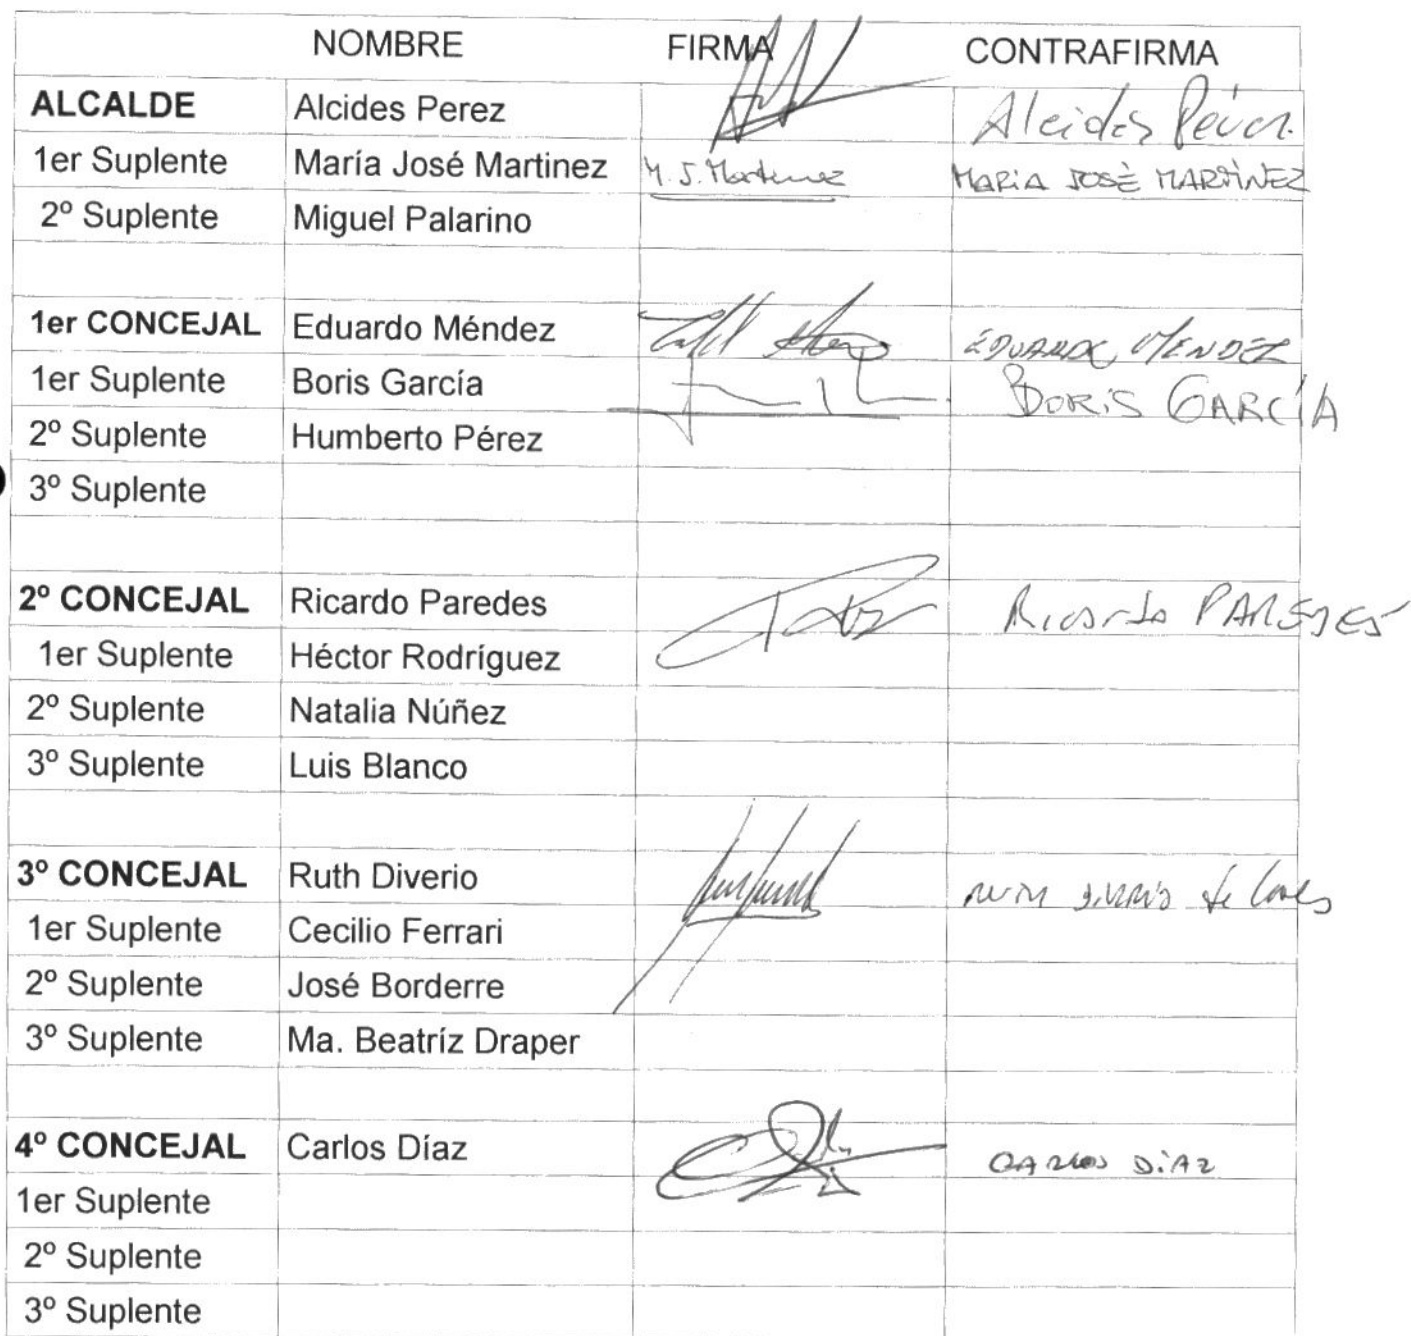 NOMBRE FIRMA CONTRAFIRMA
ALCALDE Alcides Perez Alcides Pérez
1er Suplente María José Martinez M. J. Martinez MARIA JOSÉ MARTÍNEZ
2º Suplente Miguel Palarino
1er CONCEJAL Eduardo Méndez EDUARDO MENDEZ
1er Suplente Boris García BORIS GARCÍA
2º Suplente Humberto Pérez
3º Suplente
2º CONCEJAL Ricardo Paredes Ricardo PAREDES
1er Suplente Héctor Rodríguez
2º Suplente Natalia Núñez
3º Suplente Luis Blanco
3º CONCEJAL Ruth Diverio RUTH DIVERIO de
1er Suplente Cecilio Ferrari
2º Suplente José Borderre
3º Suplente Ma. Beatríz Draper
4º CONCEJAL Carlos Díaz CARLOS DíAZ
1er Suplente
2º Suplente
3º Suplente